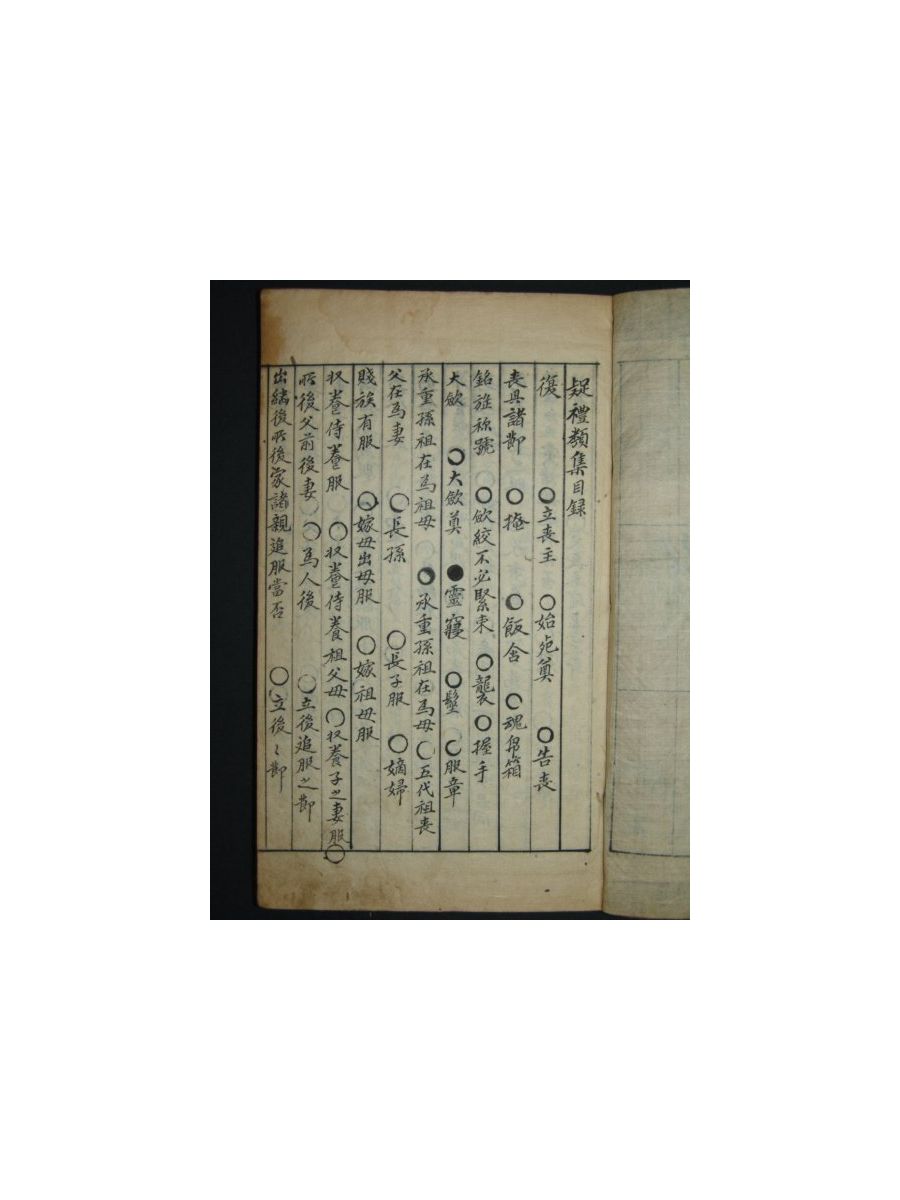 疑禮類集目録
復 ○立喪主 ○始死奠 ○告喪
喪具諸節 ○掩 ○飯含 ○魂帛箱
銘旌称號 ○斂絞不必緊束 ○襲 ○握手
大斂 ○大斂奠 ●靈寢 ○髽 ○服章
承重孫祖在為祖母 ○承重孫祖在為母 ○五代祖喪
父在為妻 ○長孫 ○長子服 ○嫡婦
賤族有服 ○嫁母出母服 ○嫁祖母服
収養侍養服 ○収養侍養祖父母 ○収養子之妻服○
所後父前後妻 ○為人後 ○立後追服之節
出繼後所後家諸親追服當否 ○立後〻節